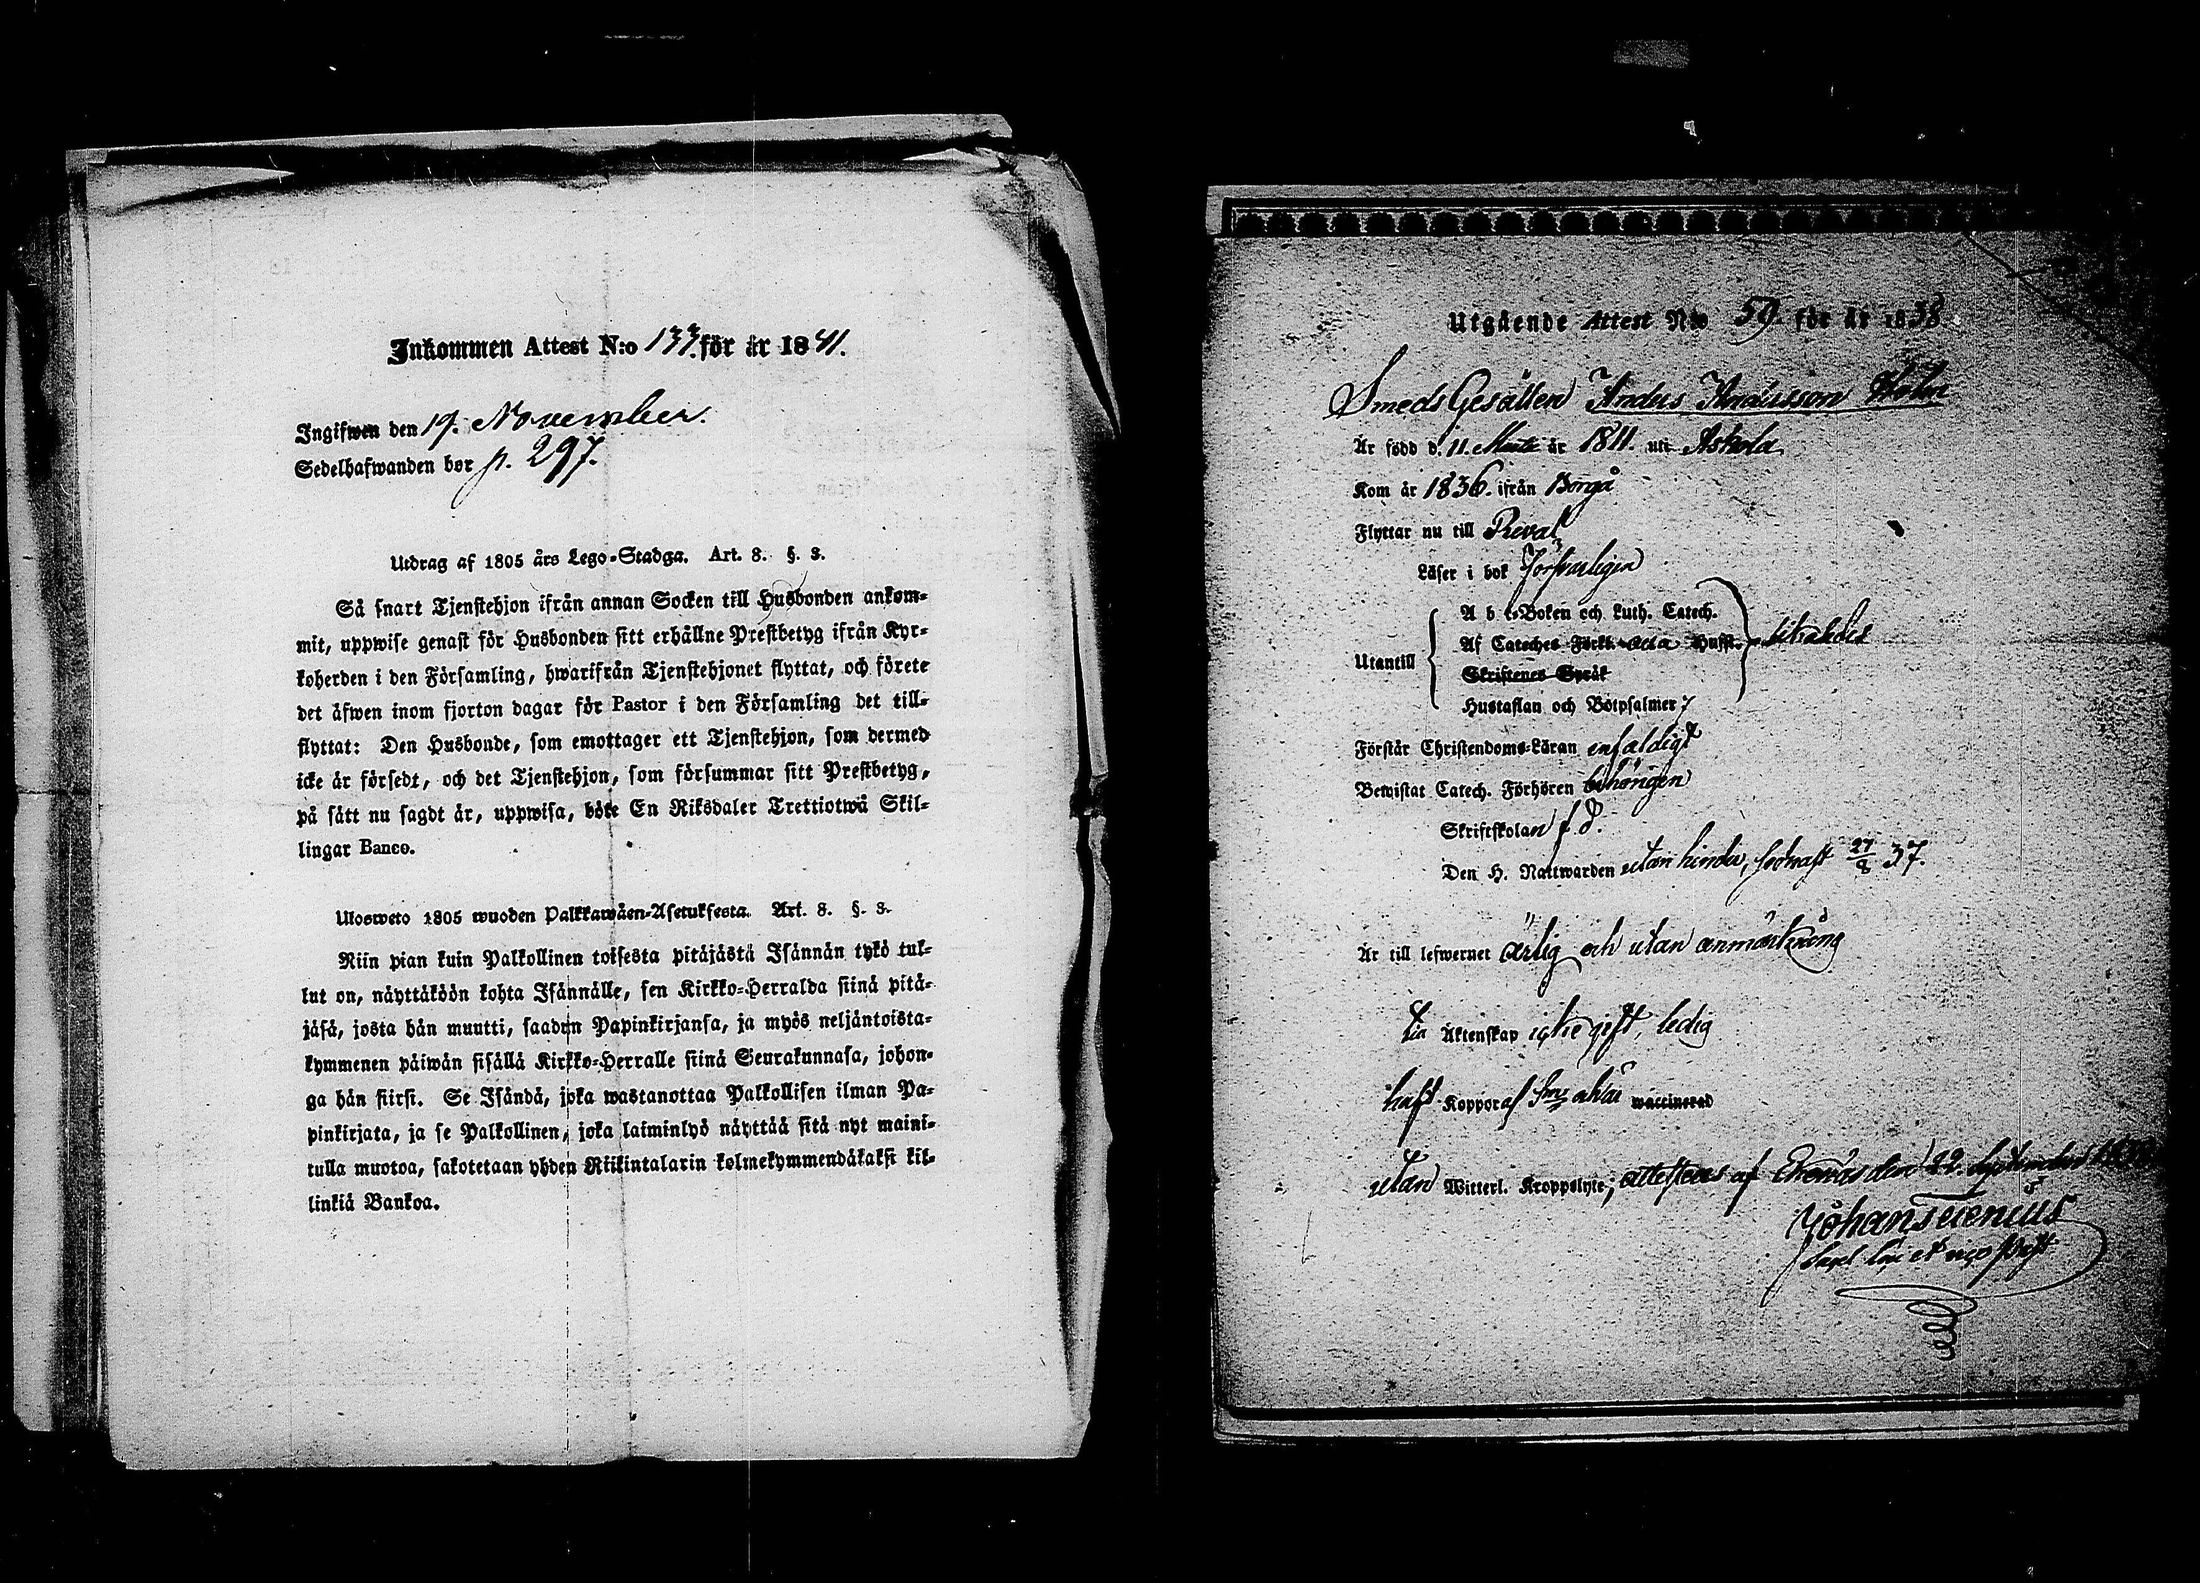 Inkommen Attest N:o 133. för år 1841.
Ingifwen den 19. November.
Sedelhafwanden bor p. 297.
Utdrag af 1805 års Lego-Stadga. Art. 8. §. 3.
Så snart Tjenstehjon ifrån annan Socken till Husbonden ankom-
mit, uppwise genast för Husbonden sitt erhållne Prestbetyg ifrån Kyr-
koherden i den Församling, hwarifrån Tjenstehjonet flyttat, och förete
det äfwen inom fjorton dagar för Pastor i den Församling det till-
flyttat: Den Husbonde, som emottager ett Tjenstehjon, som dermed
icke är försedt, och det Tjenstehjon, som försummar sitt Prestbetyg,
på sätt nu sagdt är, uppwisa, böte En Riksdaler Trettiotwå Skil-
lingar Banco.
Ulosweto 1805 wuoden Palkkawäen-Asetuksesta. Art. 8. §. 3.
Niin pian kuin Palkollinen toisesta pitäjästä Isännän tykö tul-
lut on, näyttäköön kohta Isännälle, sen Kirkko-Herralda siinä pitä-
jäsä, josta hän muutti, saadun Papinkirjansa, ja myös neljäntoista-
kymmenen päiwän sisällä Kirkko-Herralle siinä Seurakunnasa, johon-
ga hän siirsi. Se Isändä, joka wastanottaa Palkollisen ilman Pa-
pinkirjata, ja se Palkollinen, joka laiminlyö näyttää sitä nyt maini-
tulla muotoa, sakotetaan yhden Riikintalarin kolmekymmendäkaksi kil-
linkiä Bankoa.
Utgående Attest N:o 59. för år 1838
Smeds Gesällen Anders Andersson Holm
Är född d. 11. Martii år 1811. uti Askola
Kom år 1836. ifrån Borgå
Flyttar nu till Reval
Läser i bok försvarligen
A b c-Boken och Luth. Catech.
Utantill Af Cateches Förkl. Husst.
Skriftenes Språk
Hustaflan och Botpsalmer
Förstår Christendoms-Läran enfaldigt
Bewistat Catech. Förhören behörigen
Skriftskolan f. d.
Den H. Nattwarden utan hinder, sednast 27/8 37.
Är till lefwernet ärlig och utan anmärkning
Äktenskap icke gift, ledig
haft Koppor af waccinerad
utan Witterl. Kroppslyte; attesteras af Ekenäs den 22. September
Johan